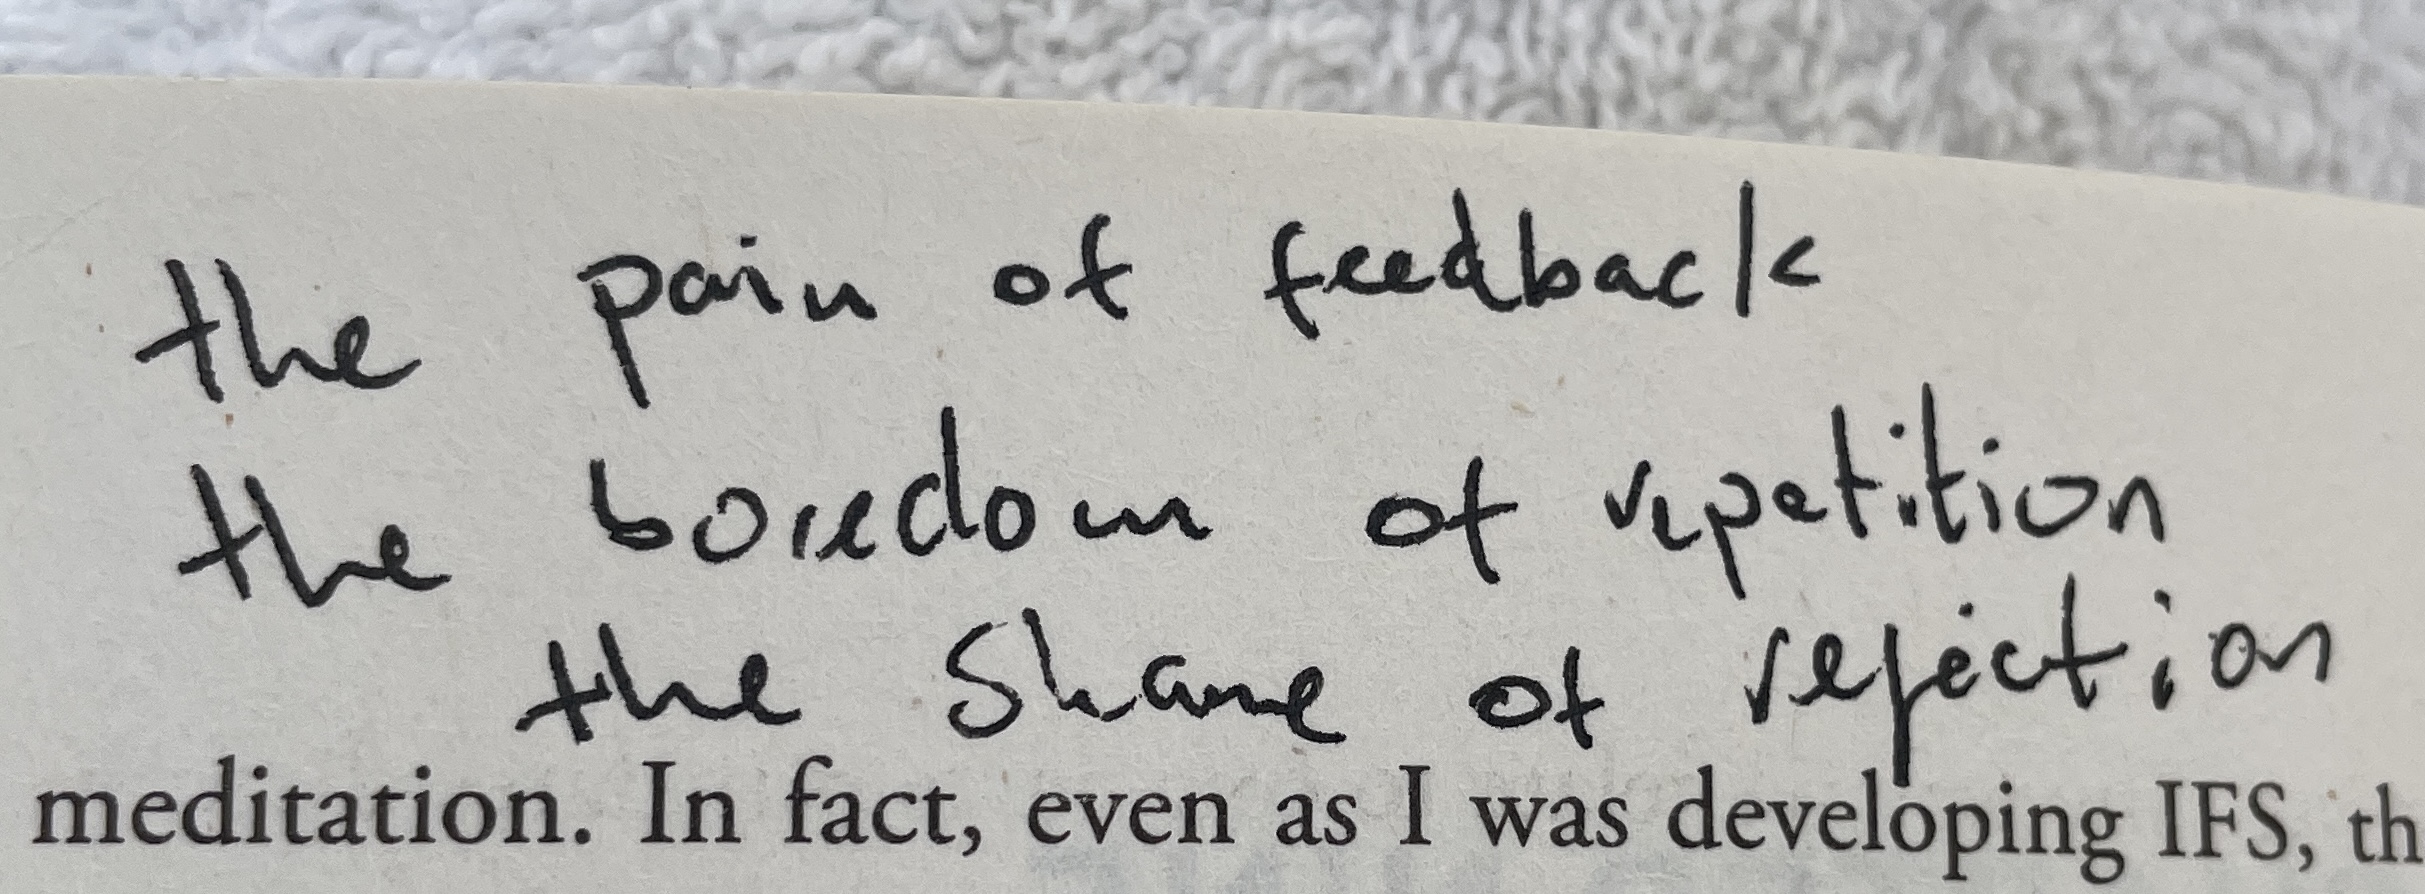 the pain of feedback
the boredom of repetition
the shame of rejection
meditation. In fact, even as I was developing IFS, th